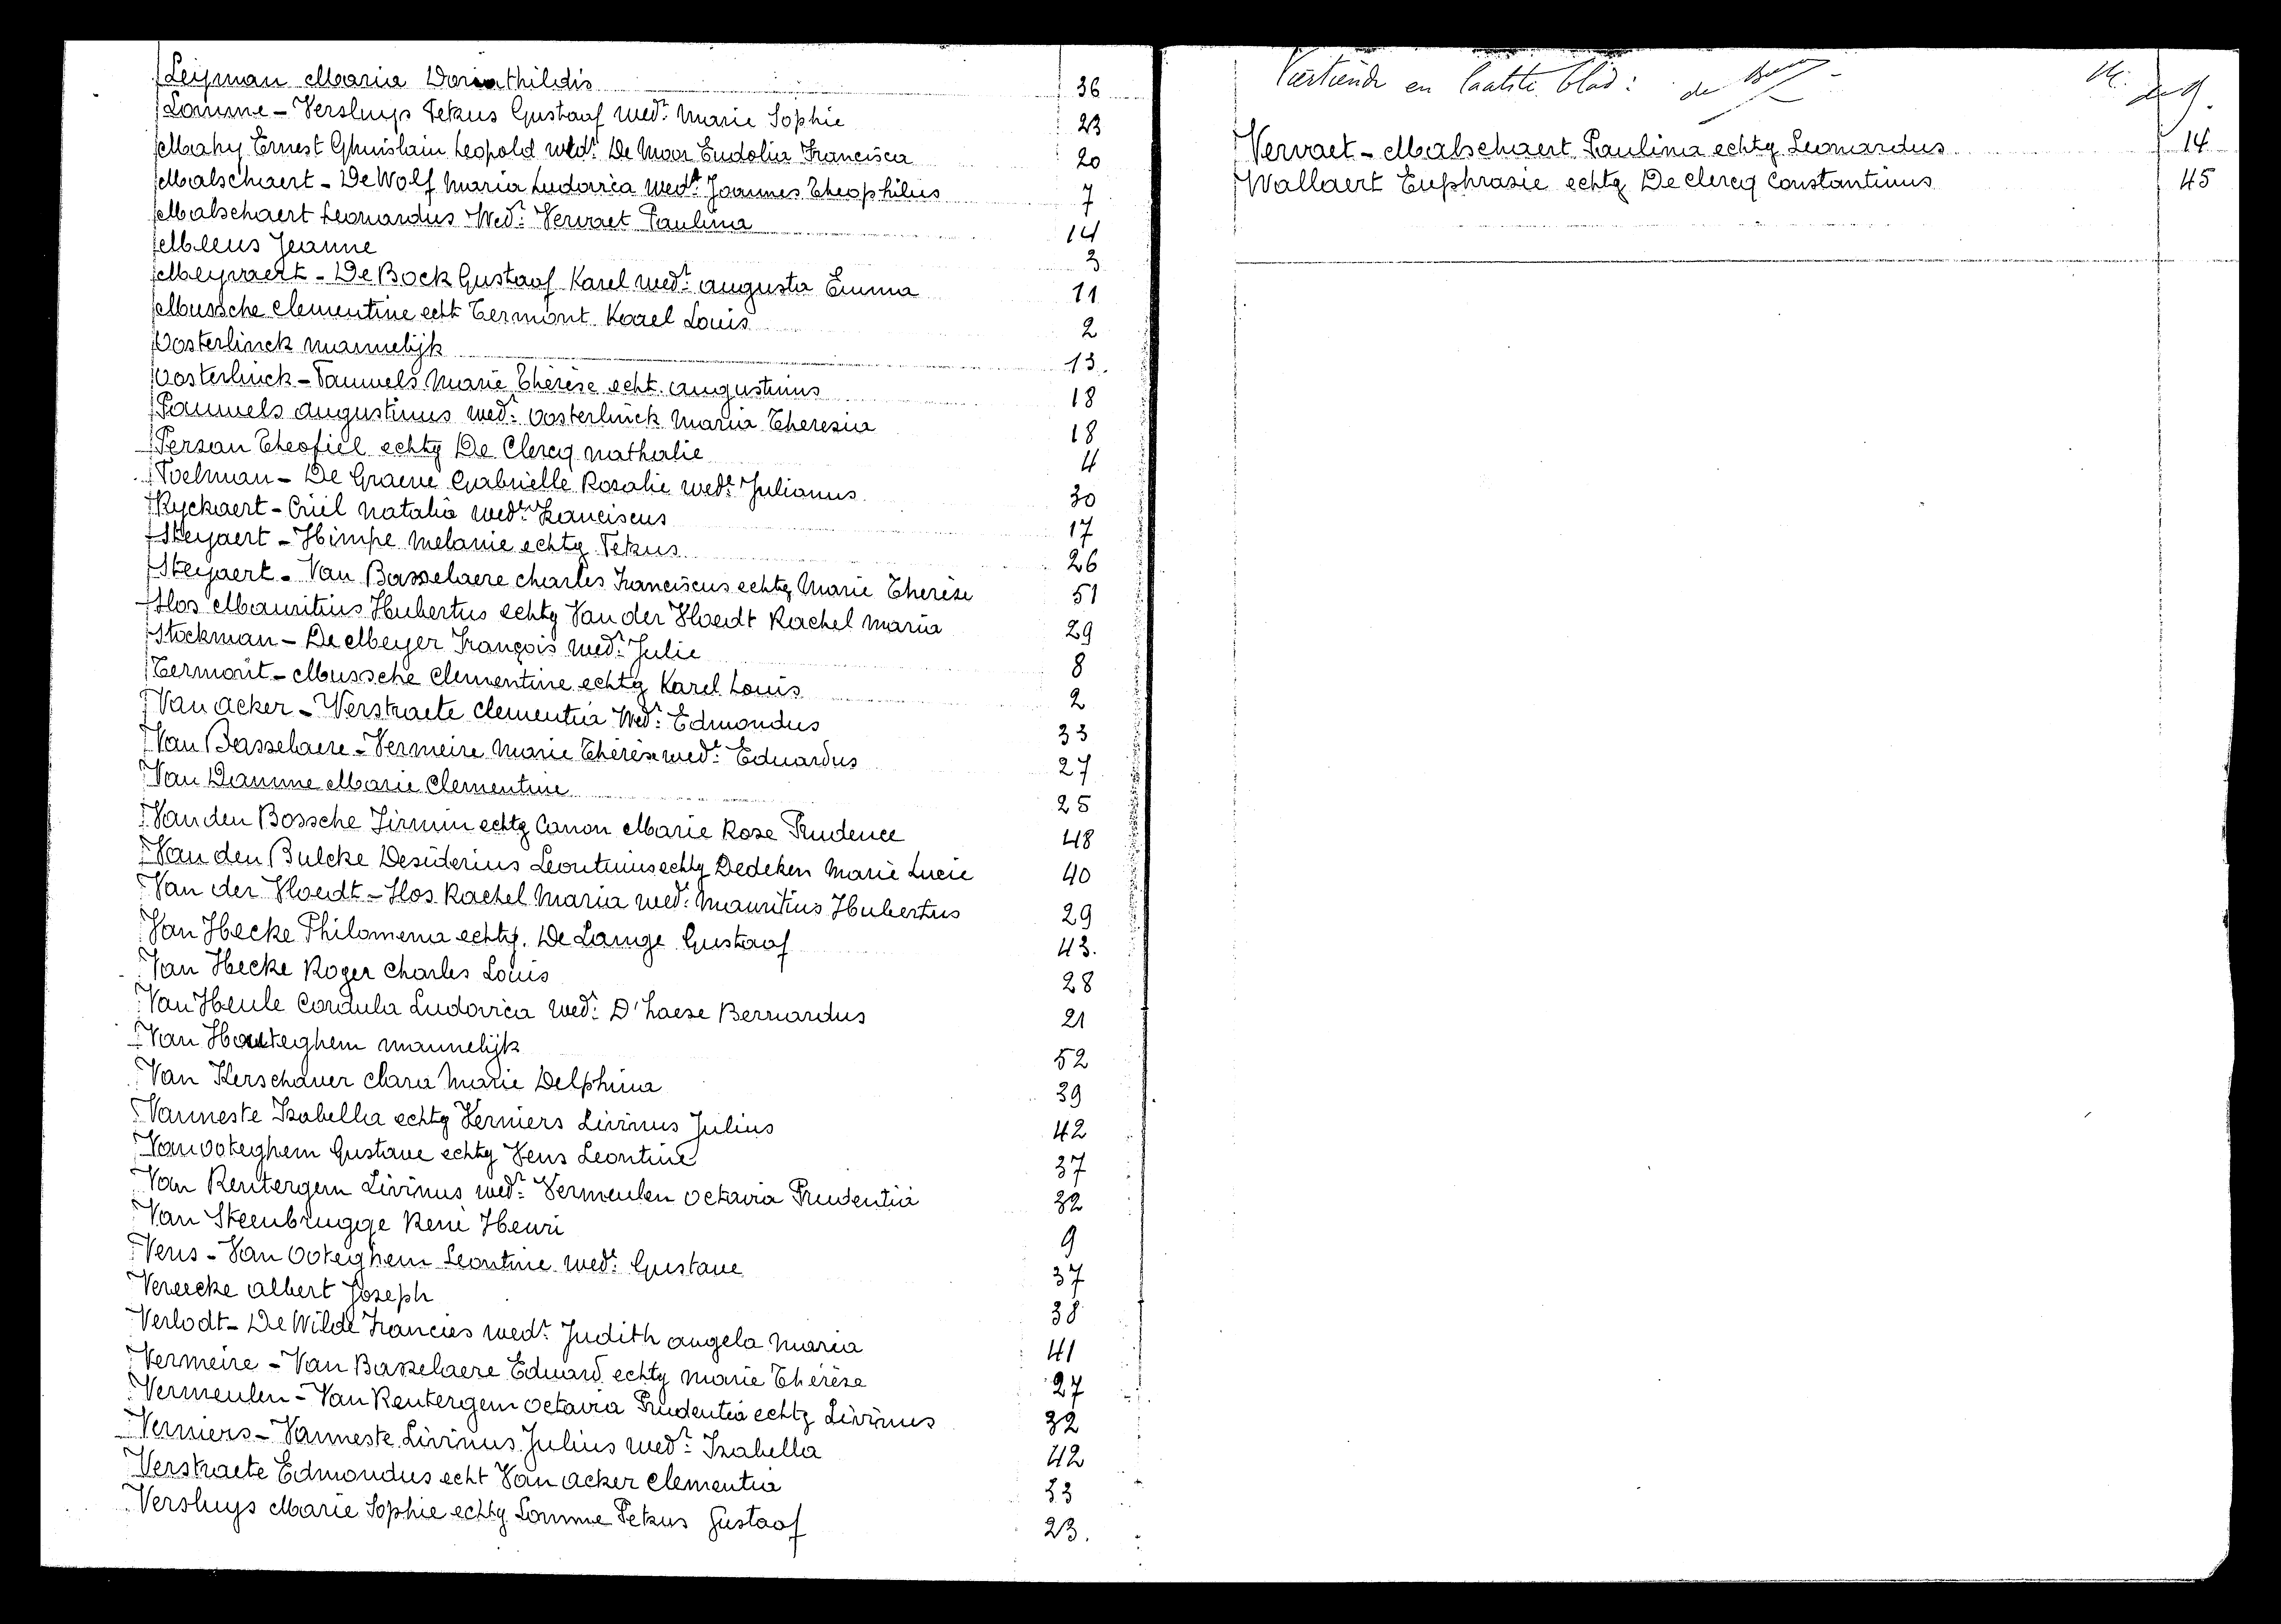 Leijman Maria Doriathildis 36
Lomme - Versluys Petrus Gustaaf wedr Marie Sophie 23
Mahy Ernest Ghuislain Leopold wedr De Moor Eudolia Francisca 20
Malschaert - De Wolf Maria Ludovica wedr Joannes Theophilus 7
Malschaert Leonardus Wedr Vervaet Paulina 14
Meeus Jeanne 3
Meyvaert - De Bock Gustaaf Karel wedr augusta Emma 11
Mussche Clementine echt Termont Karel Louis 2
Oosterlinck mannelijk 13.
Oosterlinck - Pauwels Marie Thérèse echt. augustinus 18
Pauwels augustinus wedr Oosterlinck Maria Theresia 18
Persan Theofiel echtg De Clercq nathalie 4
Poelman - De Graeve Gabrielle Rosalie wede Julianus 30
Ryckaert - Criel Natalia wedr Franciscus 17
Steyaert - Himpe Melanie echtg Petrus 26
Steyaert - Van Basselaere Charles Franciscus echtg Marie Therèse 51
Slos Mauritius Hubertus echtg Van der Vloedt Rachel Maria 29
Stockman - De Meyer François wedr Julie 8
Termont - Mussche Clementine echtg Karel Louis 2
Van acker - Verstraete Clementia Wedr Edmondus 33
Van Basselaere - Vermeire Marie Thérèse wede Eduardus 27
Van Damme Marie Clementine 25
Van den Bossche Firmin echtg Canon Marie Rose Prudence 48
Van den Bulcke Desiderius Leontinus echtg Dedeken Marie Lucie 40
Van der Vloedt - Slos Rachel Maria wede Mauritius Hubertus 29
Van Hecke Philomena echtg. De Lange Gustaaf 43.
Van Hecke Roger Charles Louis 28
Van Heule Cordula Ludovica wede D'haese Bernardus 21
Van Houteghem mannelijk 52
Van Kerschaver Clara Marie Delphina 39
Vanneste Izabella echtg Verniers Livinus Julius 42
Van ooteghem Gustave echtg Vens Leontine 37
Van Rentergem Livinus wedr Vermeulen Octavia Prudentia 32
Van Steenbrugge René Henri 9
Vens - Van Ooteghem Leontine wede Gustave 37
Vereecke albert Joseph 38
Verlodt - De Wilde Francies wedr Judith angela Maria 41
Vermeire - Van Basselaere Eduard echtg Marie Thérèse 27
Vermeulen - Van Rentergem Octavia Prudentia echtg Livinus 32
Verniers - Vanneste Livinus Julius wedr Izabella 42
Verstraete Edmondus echt Van acker Clementia 33
Versluys Marie Sophie echtg Lomme Petrus Gustaaf 23.
Viertiende en laatste blad:
Vervaet - Malschaert Paulina echtg Leonardus 14
Wallaert Euphrasie echtg De Clercq Constantinus 45